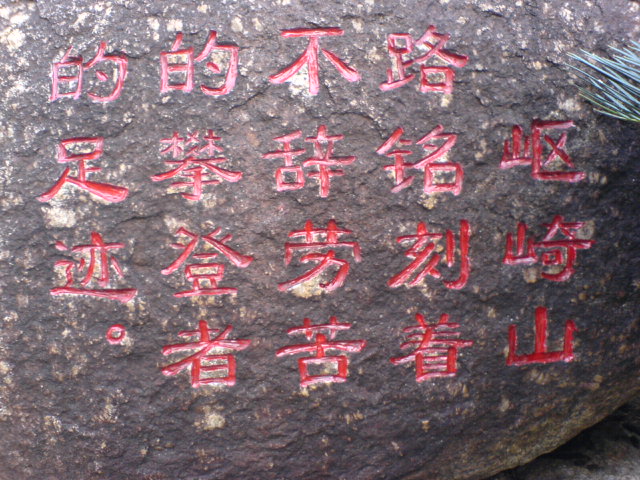 岖崎山
路铭刻着
不辞劳苦
的攀登者
的足迹。